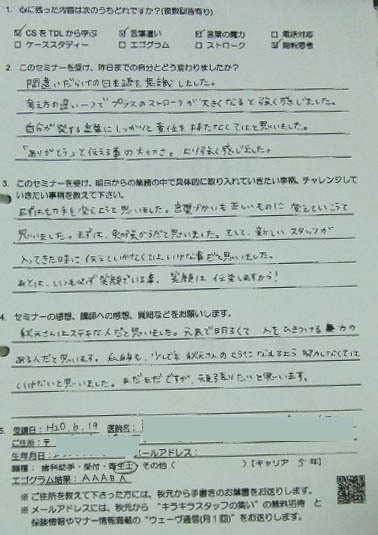 1. 心に残った内容は次のうちどれですか?(複数回答有り)
☑ CS を TDL から学ぶ ☑ 言葉遣い ☑ 言葉の魔力 □ 電話対応
□ ケーススタディー □ エゴグラム □ ストローク ☑ 陽転思考
2. このセミナーを受け、昨日までの自分とどう変わりましたか?
間違いだらけの日本語を意識しました。
考え方の違い一つでプラスのストロークが大きくなると強く感じました。
自分が発する言葉にしっかりと責任を持たなくてはと思いました。
「ありがとう」と伝える事の大切さ、より強く感じました。
3. このセミナーを受け、明日からの業務の中で具体的に取り入れていきたい事柄、チャレンジして
いきたい事柄を教えて下さい。
言葉づかいも正しいものに変えていこうと
思いました。まずは、変わろうと思いました。そして、新しいスタッフが
入ってきた時に伝えていかなくてはいけない事だと思いました。
あとは、いつも必ず笑顔でいる事。笑顔は伝染しますから!
4. セミナーの感想、講師への感想、質問などをお願いします。
秋元さんはステキな人だと思いました。元気で明るくて、人をひきつける魅力の
ある人だと思います。私自身も、少しでも秋元さんのようになれるよう努力しなくては
いけないと思いました。まだまだですが、頑張りたいと思います。
5. 受講日: H20.6.19 医院名:
ご住所:〒
生年月日: メールアドレス:
職種:歯科助手・受付・衛生士 その他( )【キャリア 5年】
エゴグラム結果: AAABA
※ ご住所を教えて下さった方には、秋元から手書きのお葉書をお送りします。
※ メールアドレスには、秋元から “キラキラスタッフの集い” の無料招待 と
保険情報やマナー情報満載の “ウェーブ通信(月1回)” をお送りします。